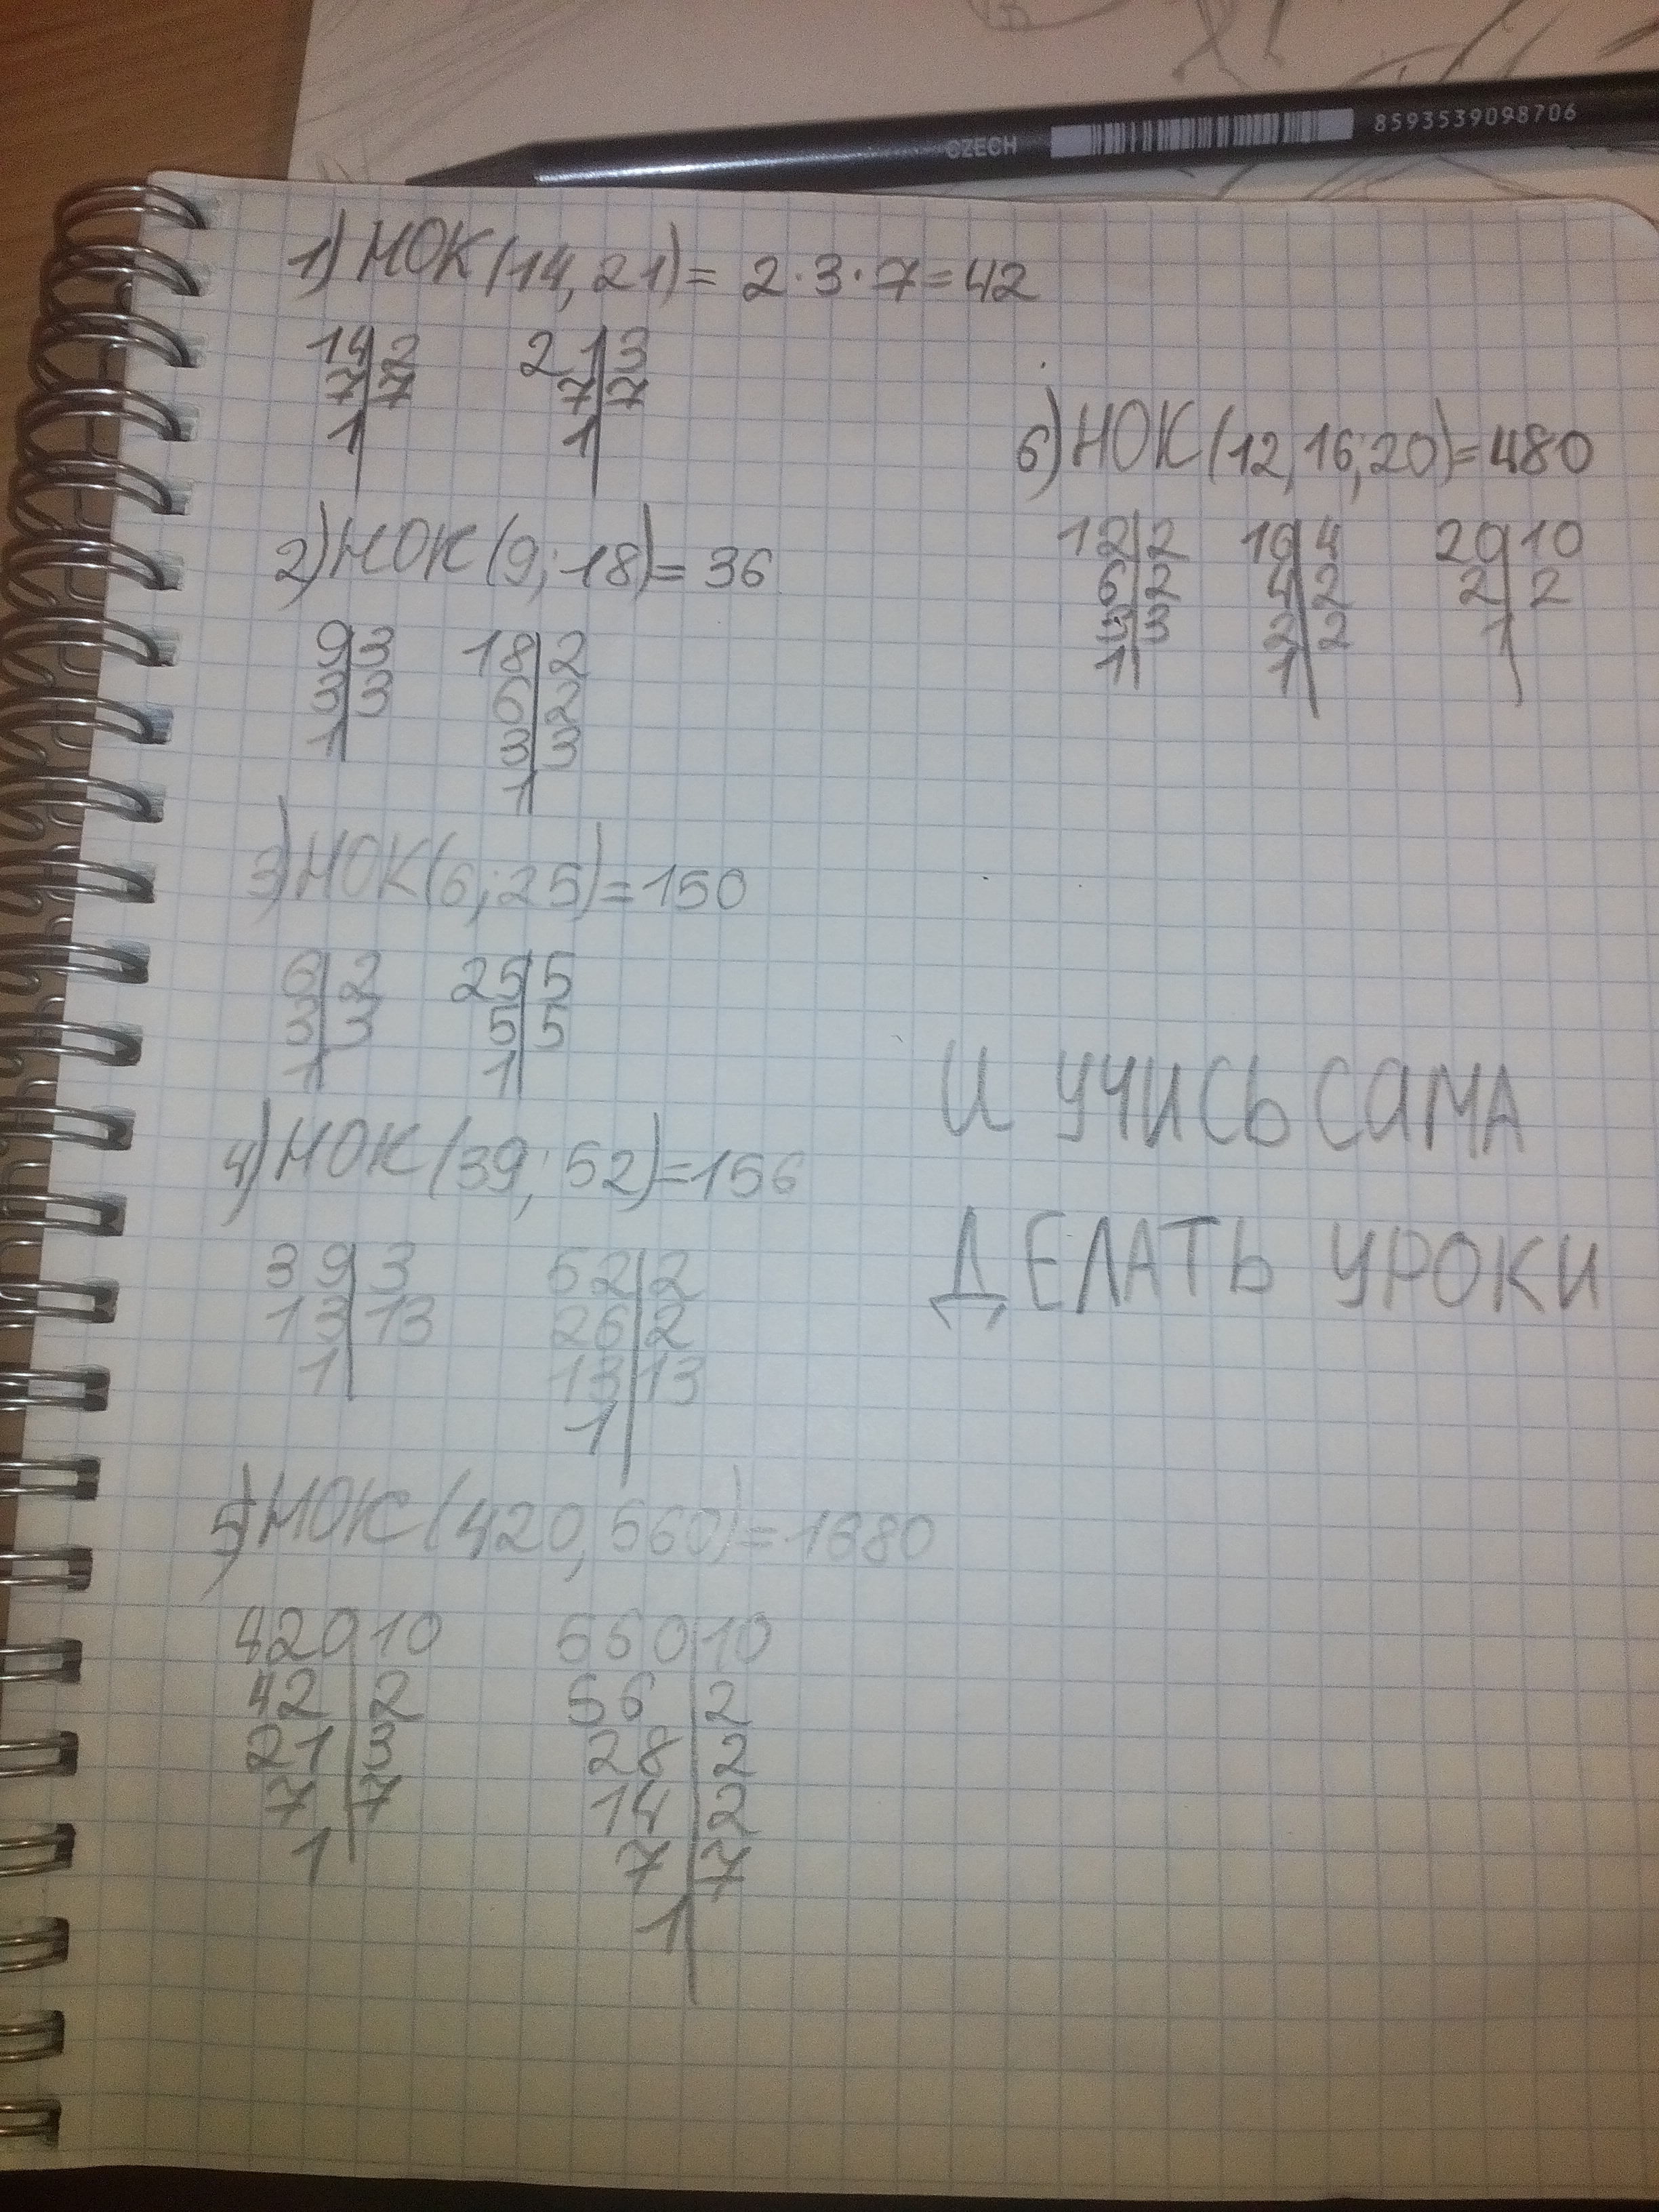 CZECH 8593539098706
1) НОК(14, 21) = 2·3·7=42
14|2 21|3
7|7 7|7
1| 1|
2) НОК(9; 18) = 36
9|3 18|2
3|3 6|2
1| 3|3
1|
3) НОК(6; 25) = 150
6|2 25|5
3|3 5|5
1| 1|
4) НОК(39; 52) = 156
39|3 52|2
13|13 26|2
1| 13|13
1|
5) НОК(420, 560) = 1680
420|10 560|10
42|2 56|2
21|3 28|2
7|7 14|2
1| 7|7
1|
6) НОК(12, 16; 20) = 480
12|2 16|4 20|10
6|2 4|2 2|2
3|3 2|2 1|
1| 1|
И УЧИСЬ САМА
ДЕЛАТЬ УРОКИ